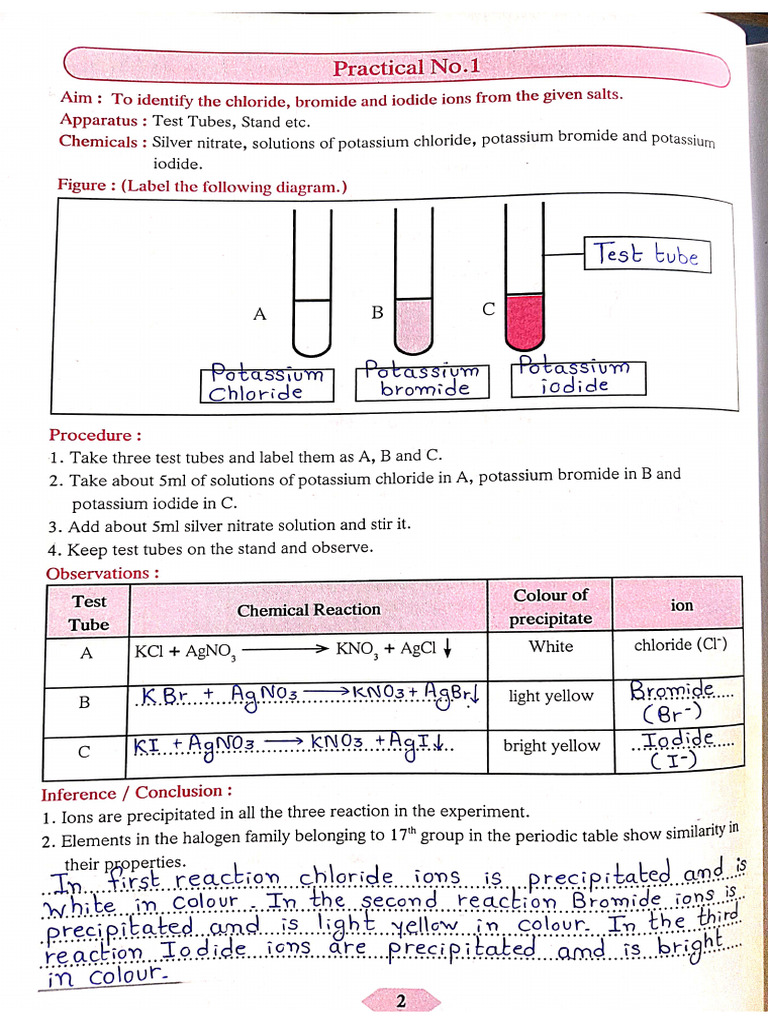 Practical No.1
Aim : To identify the chloride, bromide and iodide ions from the given salts.
Apparatus : Test Tubes, Stand etc.
Chemicals : Silver nitrate, solutions of potassium chloride, potassium bromide and potassium
iodide.
Figure : (Label the following diagram.)
Test tube
A
B
C
Potassium
Chloride
Potassium
bromide
Potassium
iodide
Procedure :
1. Take three test tubes and label them as A, B and C.
2. Take about 5ml of solutions of potassium chloride in A, potassium bromide in B and
potassium iodide in C.
3. Add about 5ml silver nitrate solution and stir it.
4. Keep test tubes on the stand and observe.
Observations :
Test Tube | Chemical Reaction | Colour of precipitate | ion
A | KCl + AgNO₃ ⟶ KNO₃ + AgCl ↓ | White | chloride (Cl⁻)
B | KBr + AgNO₃ ⟶ KNO₃ + AgBr↓ | light yellow | Bromide (Br⁻)
C | KI + AgNO₃ ⟶ KNO₃ + AgI↓ | bright yellow | Iodide (I⁻)
Inference / Conclusion :
1. Ions are precipitated in all the three reaction in the experiment.
2. Elements in the halogen family belonging to 17th group in the periodic table show similarity in
their properties.
In first reaction chloride ions is precipitated and is
white in colour. In the second reaction Bromide ions is
precipitated and is light yellow in colour. In the third
reaction Iodide ions are precipitated and is bright
in colour.
2